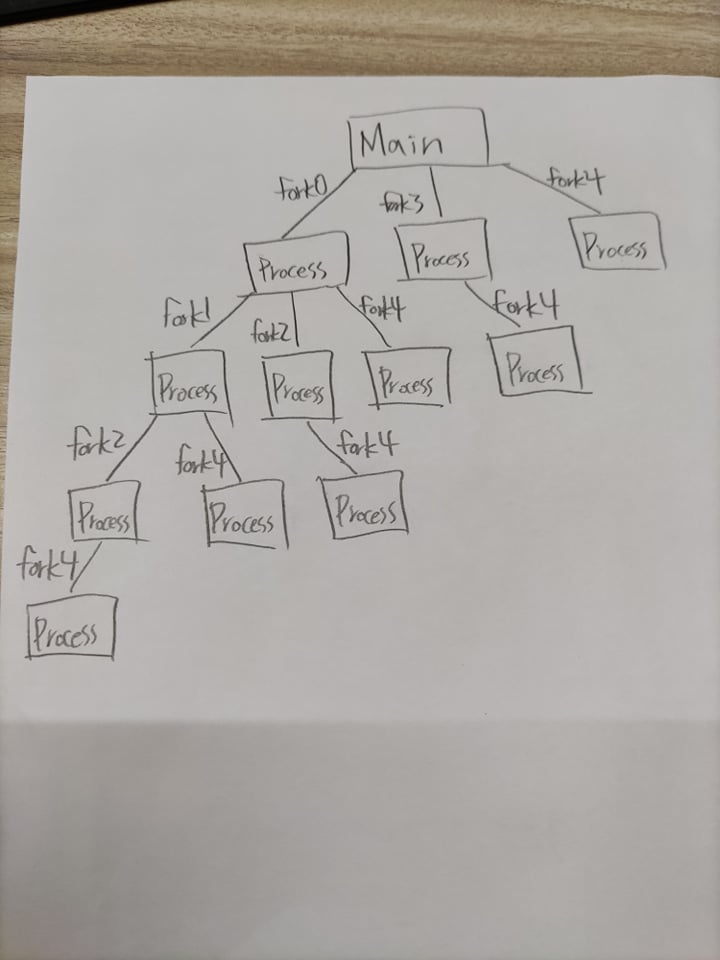 Main
fork0 fork3 fork4
Process Process Process
fork1 fork2 fork4 fork4
Process Process Process Process
fork2 fork4 fork4
Process Process Process
fork4
Process